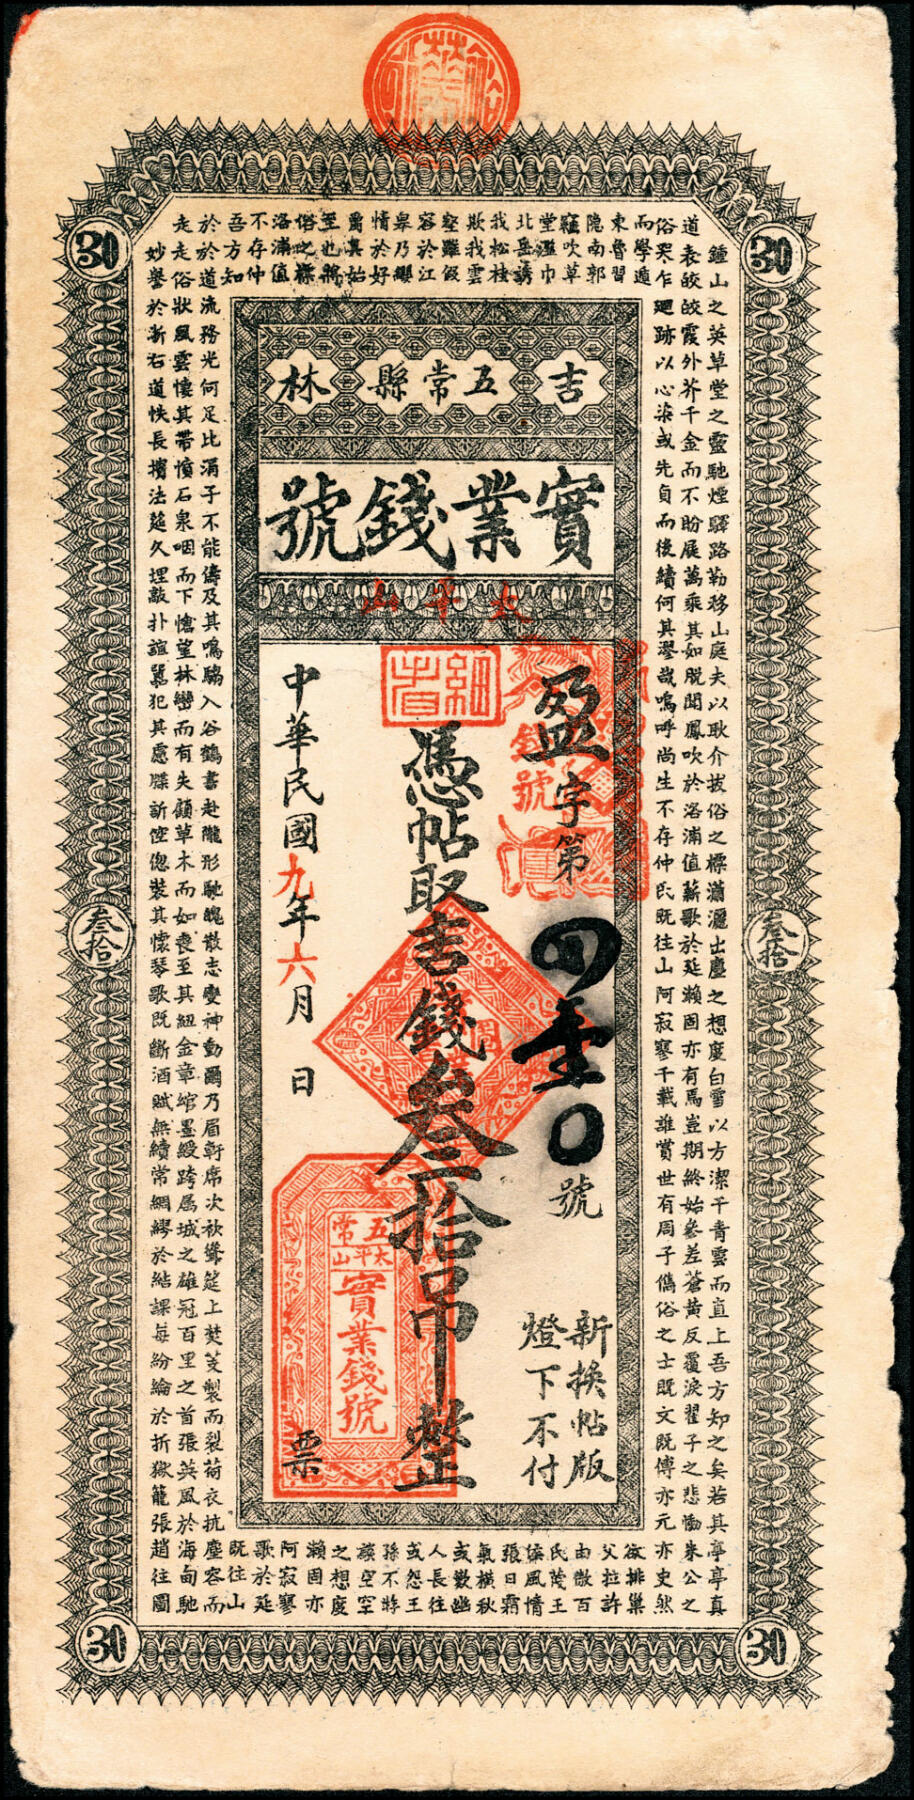 30
30
吉 五常縣 林
實業錢號
太平山
盈字第四百0號
新換帖版
燈下不付
憑帖取吉錢叁拾吊整
中華民國九年六月 日
票
五常
太平山
實業錢號
錢號
叁拾
叁拾
30
30
鍾山之英草堂之靈馳煙驛路勒移山庭夫以耿介拔俗之標瀟灑出塵之想度白雪以方潔干青雲而直上吾方知之矣若其亭亭真
道表皎皎霞外芥千金而不盼屣萬乘其如脫聞鳳吹於洛浦值薪歌於延瀨固亦有焉豈期終始參差蒼黃反覆淚翟子之悲慟朱公之
俗哭乍廻跡以心染或先貞而後續何其謬哉嗚呼尚生不存仲氏既往山阿寂寥千載誰賞世有周子儁俗之士既文既傳亦元亦史然
而學遁
東魯習
隐南郭
竊吹草
堂濫巾
北岳誘
我松桂
欺我雲
壑雖假
容於江
皋乃纓
情於好
爵其始
至也將
俗之標
洛浦值
不存仲
吾方知
於於道流務光何足比涓子不能儔及其鳴騶入谷鶴書赴隴形馳魄散志變神動爾乃眉軒席次袂聳筵上焚芰製而裂荷衣抗塵容而
走走俗狀風雲悽其帶憤石泉咽而下愴望林巒而有失顧草木而如喪至其紐金章綰墨綬跨屬城之雄冠百里之首張英風於海甸馳
妙譽於浙右道帙長擯法筵久埋敲扑諠囂犯其慮牒訴倥傯裝其懷琴歌既斷酒賦無續常綢繆於結課每紛綸於折獄籠張趙往圖
欲排巢
父拉許
由傲百
民蔑王
侯風情
張日霜
氣橫秋
或歎幽
人長往
或怨王
孫不游
談空空
之想度
瀨固亦
阿寂寥
歌於延
既往山